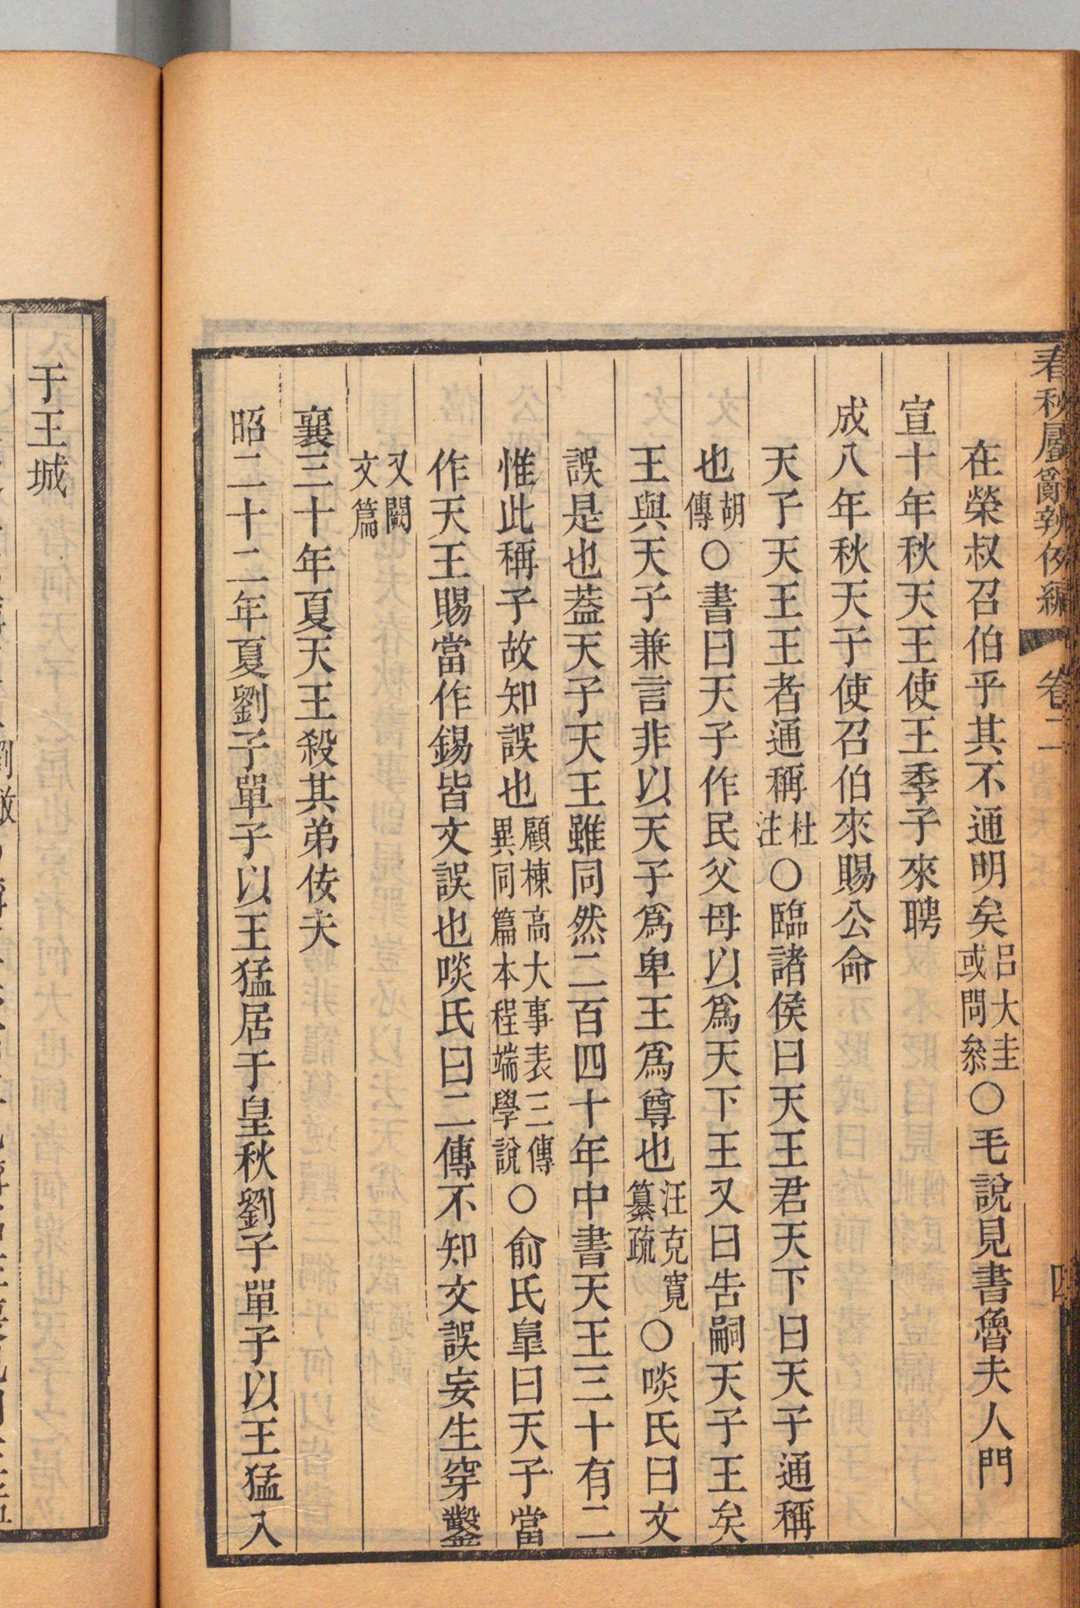 春秋屬辭辨例編 卷二 四
在榮叔召伯乎其不通明矣呂大圭或問叅〇毛說見書魯夫人門
宣十年秋天王使王季子來聘
成八年秋天子使召伯來賜公命
天子天王王者通稱杜注〇臨諸侯曰天王君天下曰天子通稱
也胡傳〇書曰天子作民父母以爲天下王又曰告嗣天子王矣
王與天子兼言非以天子爲卑王爲尊也汪克寬纂疏〇啖氏曰文
誤是也蓋天子天王雖同然二百四十年中書天王三十有二
惟此稱子故知誤也顧棟高大事表三傳異同篇本程端學說〇俞氏皐曰天子當
作天王賜當作錫皆文誤也啖氏曰二傳不知文誤妄生穿鑿
又闕文篇
襄三十年夏天王殺其弟佞夫
昭二十二年夏劉子單子以王猛居于皇秋劉子單子以王猛入
于王城